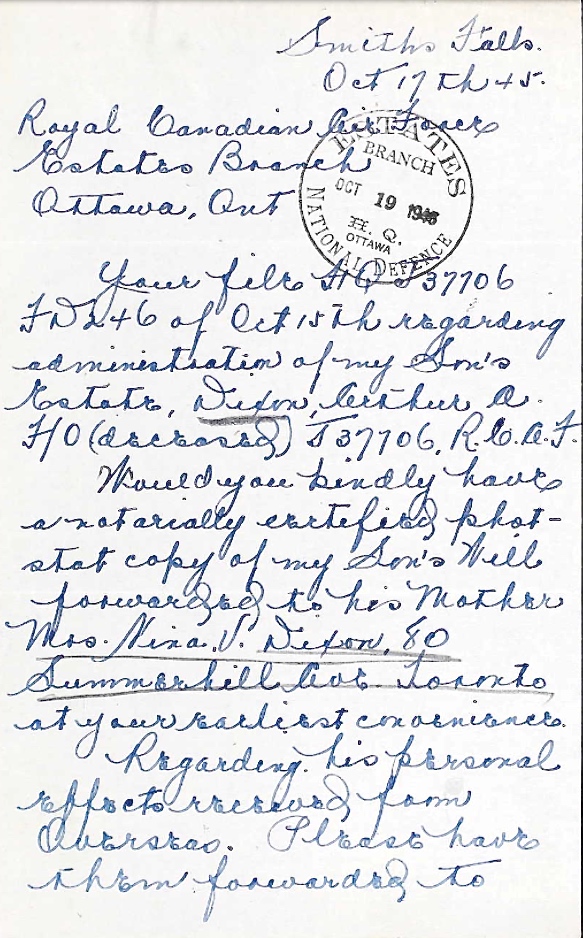 Smiths Falls.
Oct 17th 45.
Royal Canadian Air Force
Estates Branch
Ottawa, Ont
ESTATES
BRANCH
OCT 19 1945
H. Q.
OTTAWA
NATIONAL DEFENCE
Your file HQ J37706
FD246 of Oct 15th regarding
administration of my Son's
Estate, Dixon, Arthur A.
F/O (deceased) J37706, R.C.A.F.
Would you kindly have
a notarially certified phot-
stat copy of my Son's Will
forwarded to his Mother
Mrs. Nina. V. Dixon, 80
Summerhill Ave Toronto,
at your earliest convenience.
Regarding his personal
effects received from
Overseas. Please have
them forwarded to